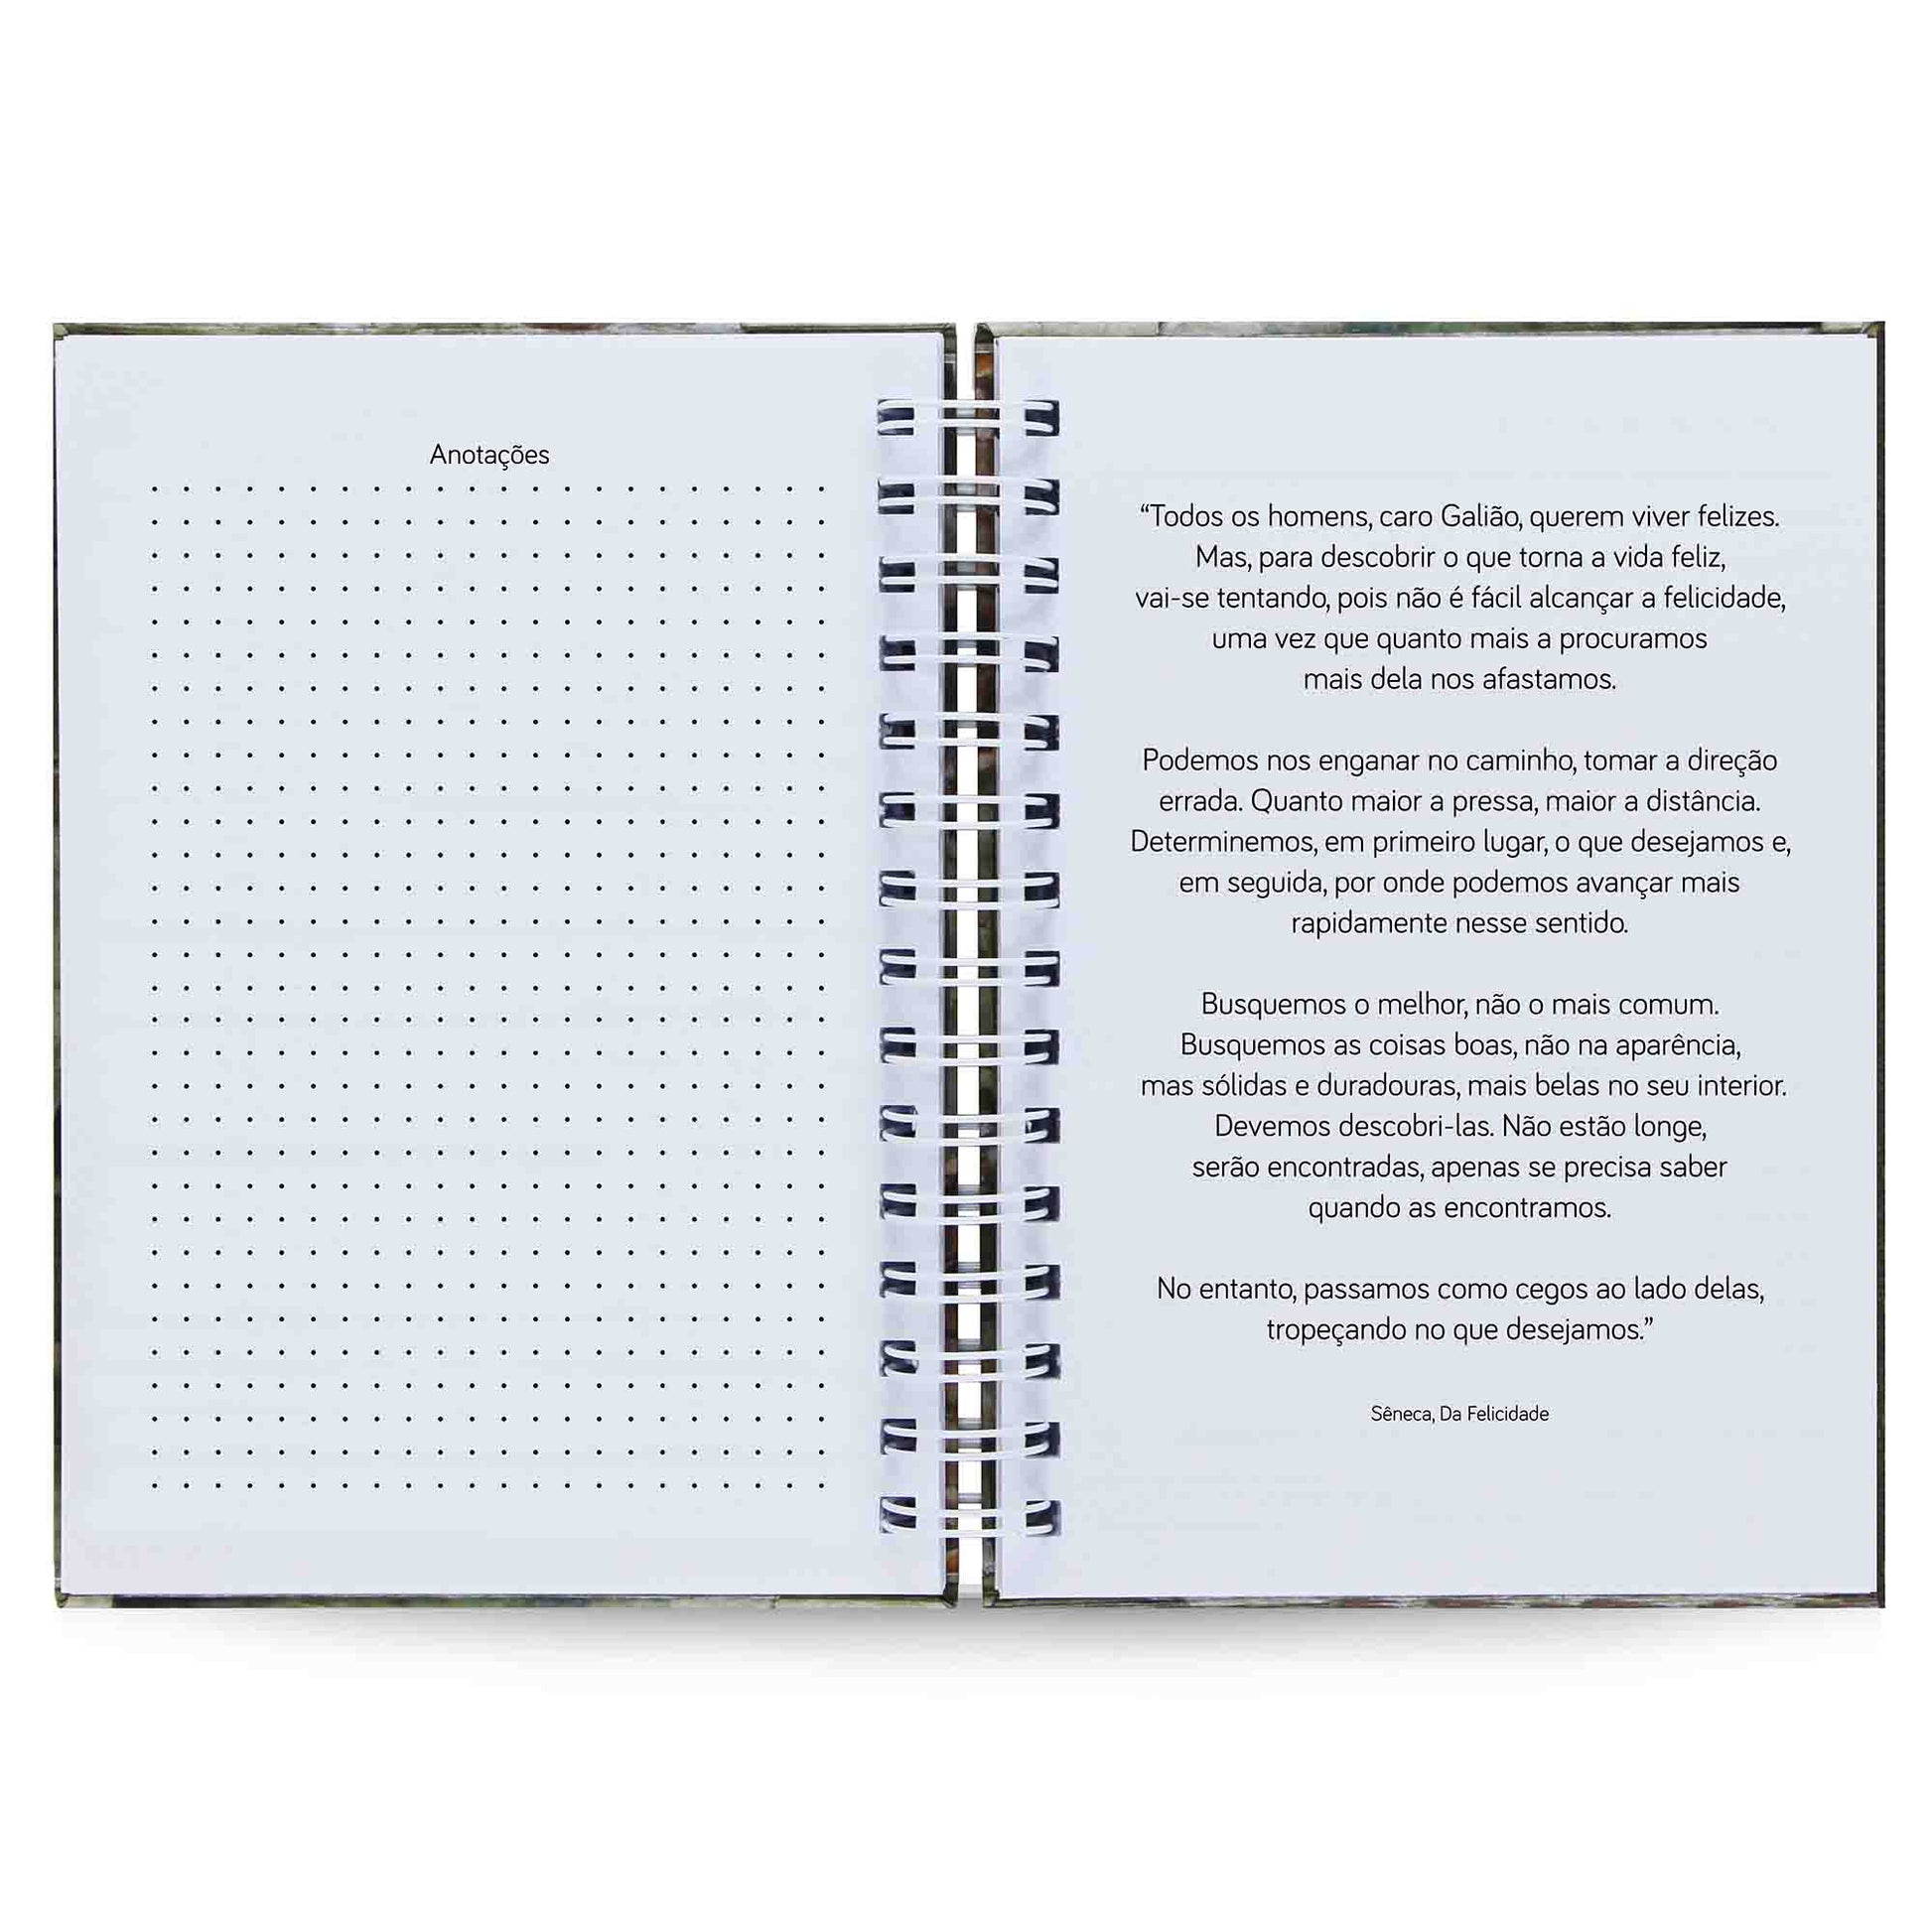 Anotações
“Todos os homens, caro Galião, querem viver felizes.
Mas, para descobrir o que torna a vida feliz,
vai-se tentando, pois não é fácil alcançar a felicidade,
uma vez que quanto mais a procuramos
mais dela nos afastamos.
Podemos nos enganar no caminho, tomar a direção
errada. Quanto maior a pressa, maior a distância.
Determinemos, em primeiro lugar, o que desejamos e,
em seguida, por onde podemos avançar mais
rapidamente nesse sentido.
Busquemos o melhor, não o mais comum.
Busquemos as coisas boas, não na aparência,
mas sólidas e duradouras, mais belas no seu interior.
Devemos descobri-las. Não estão longe,
serão encontradas, apenas se precisa saber
quando as encontramos.
No entanto, passamos como cegos ao lado delas,
tropeçando no que desejamos.”
Sêneca, Da Felicidade